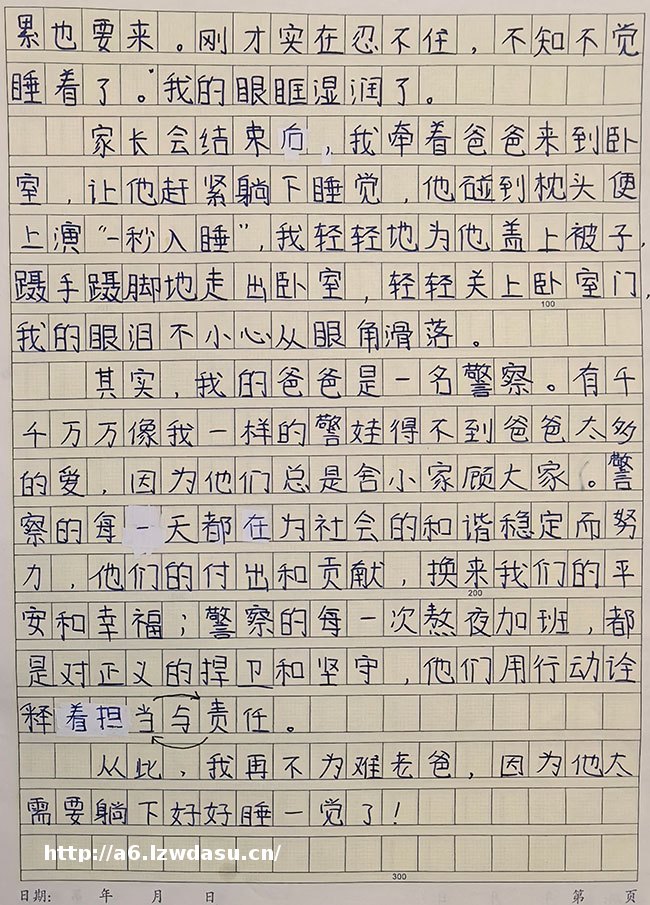 累也要来。刚才实在忍不住，不知不觉
睡着了。我的眼眶湿润了。
家长会结束后，我牵着爸爸来到卧
室，让他赶紧躺下睡觉，他碰到枕头便
上演“一秒入睡”，我轻轻地为他盖上被子，
蹑手蹑脚地走出卧室，轻轻关上卧室门，
100
我的眼泪不小心从眼角滑落。
其实，我的爸爸是一名警察。有千
千万万像我一样的警娃得不到爸爸太多
的爱，因为他们总是舍小家顾大家。警
察的每一天都在为社会的和谐稳定而努
力，他们的付出和贡献，换来我们的平
200
安和幸福；警察的每一次熬夜加班，都
是对正义的捍卫和坚守，他们用行动诠
释着担当与责任。
从此，我再不为难老爸，因为他太
需要躺下好好睡一觉了！
http://a6.lzwdasu.cn/
300
日期: 年 月 日 第 页